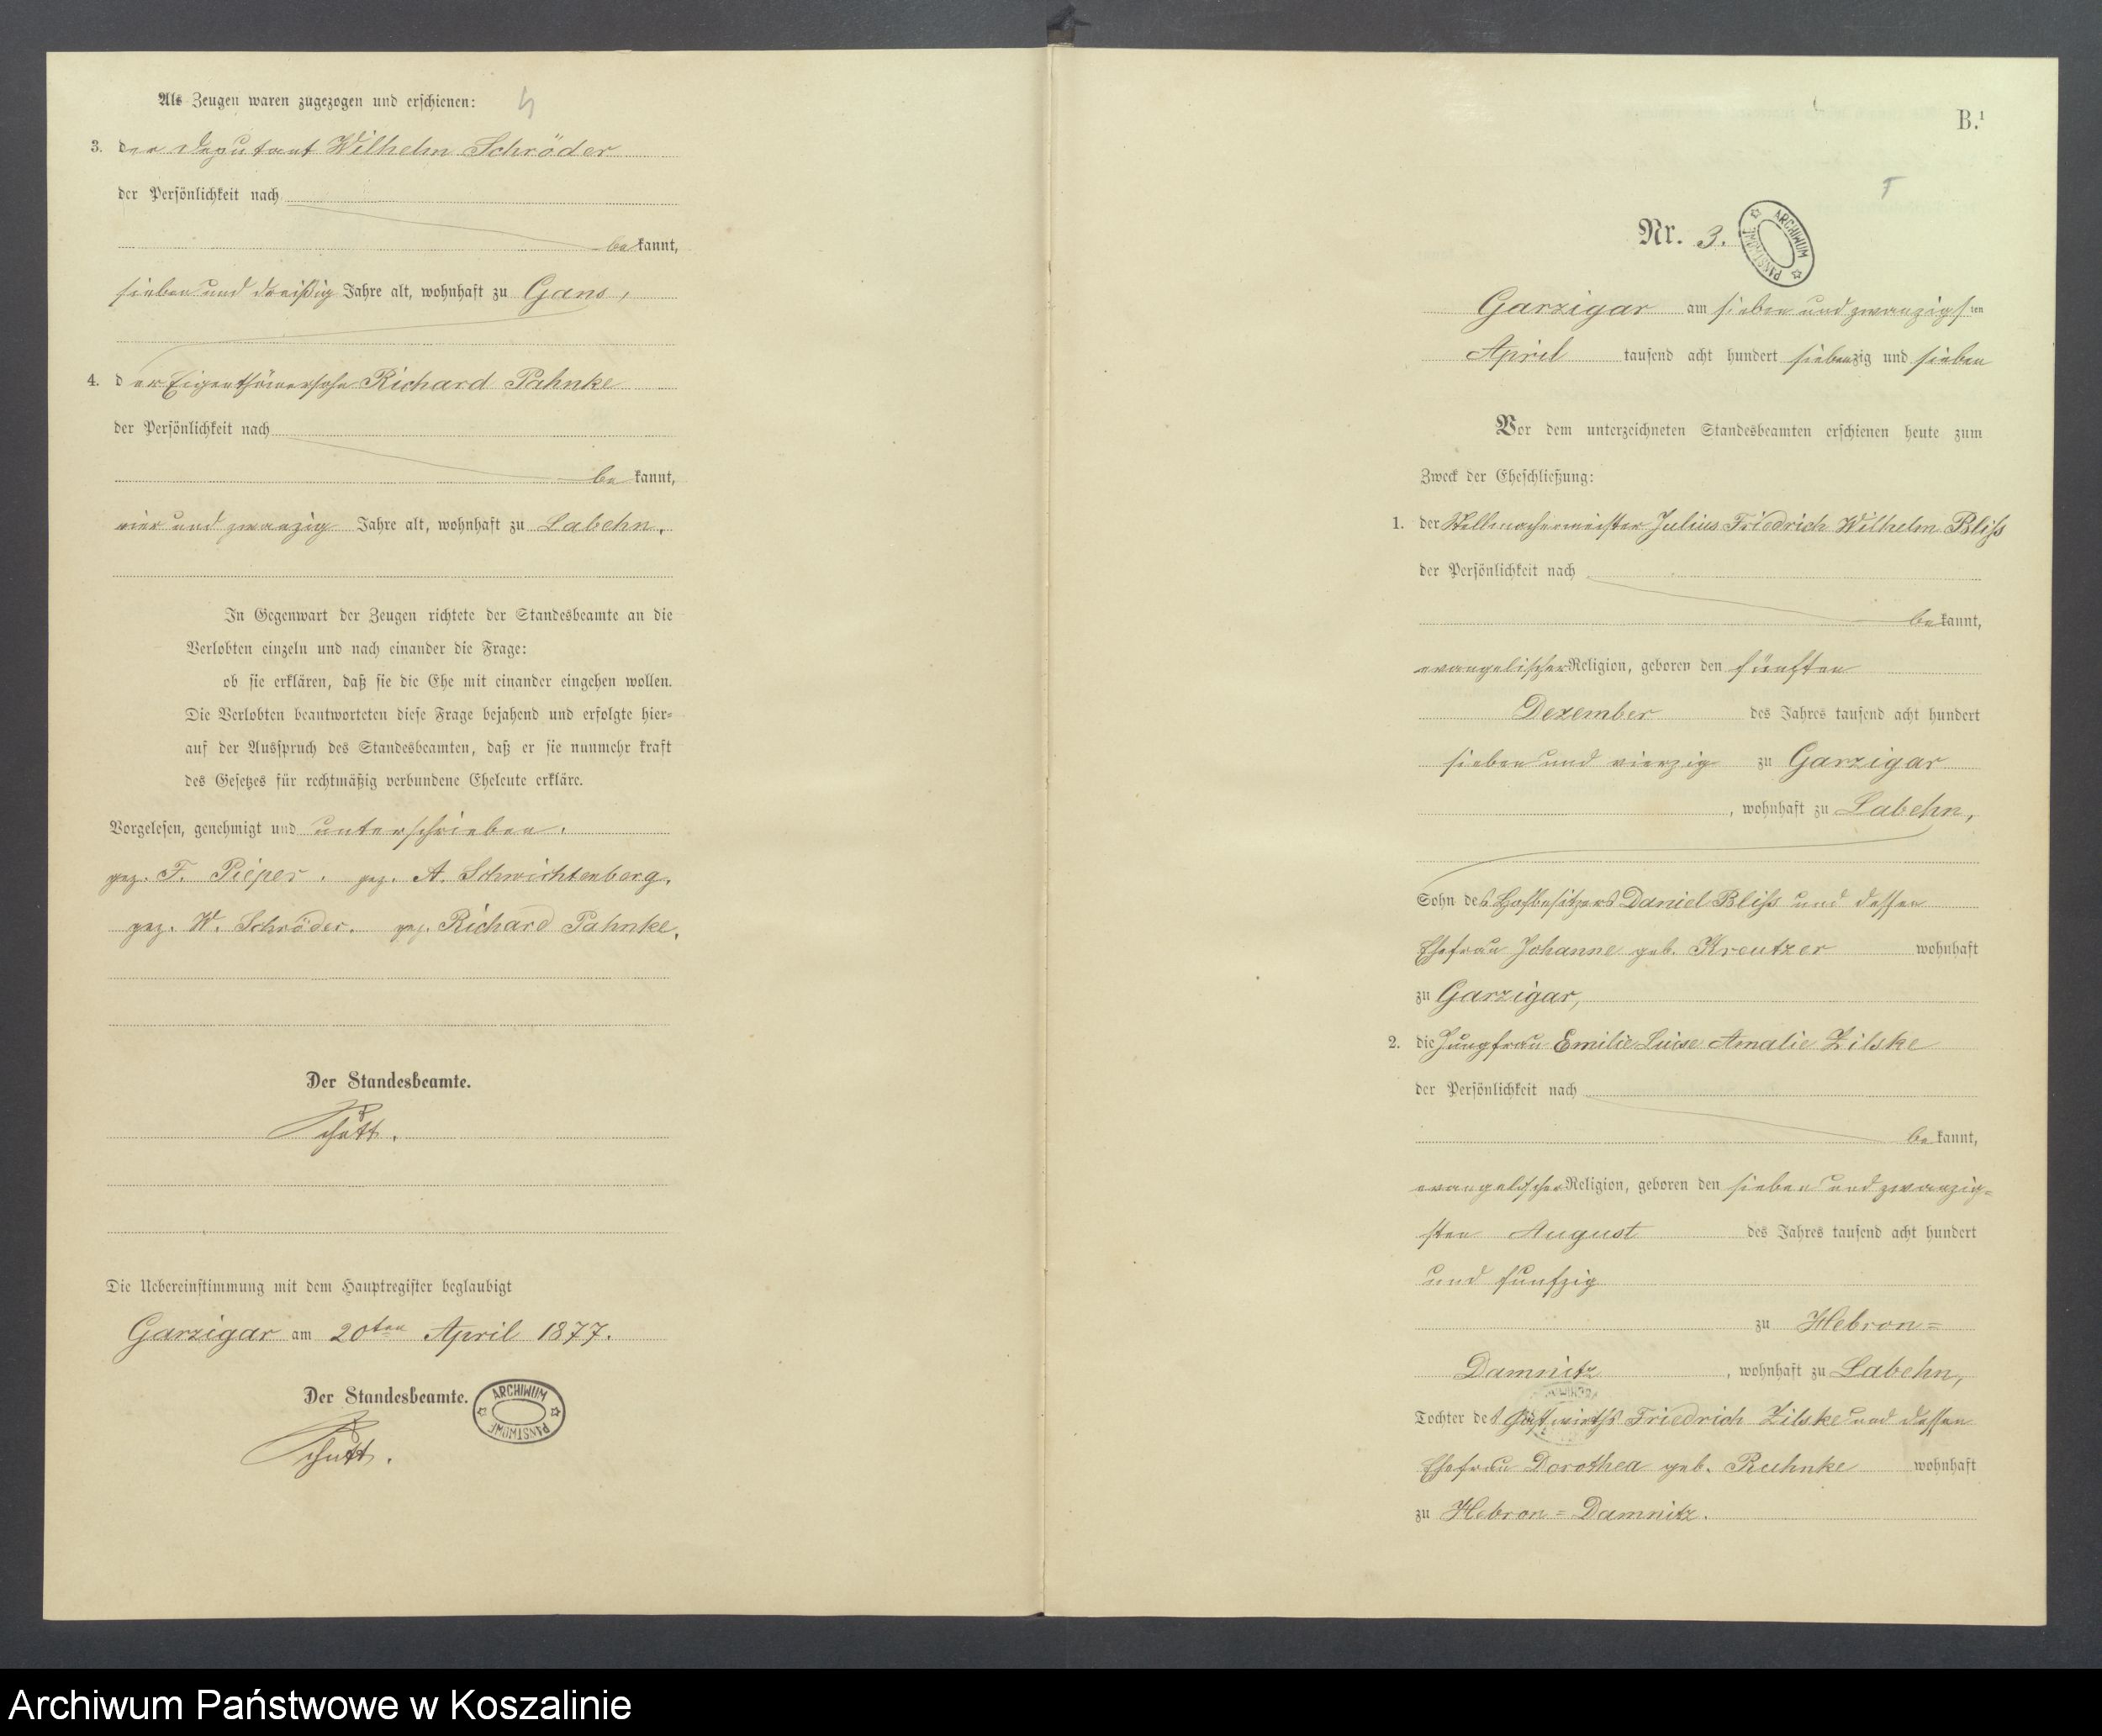 Als Zeugen waren zugezogen und erschienen:
3. der Deputant Wilhelm Schröder
der Persönlichkeit nach
be kannt,
sieben und dreißig Jahre alt, wohnhaft zu Gans,
4. d er Eigenthümersohn Richard Pahnke
der Persönlichkeit nach
be kannt,
vier und zwanzig Jahre alt, wohnhaft zu Labehn,
In Gegenwart der Zeugen richtete der Standesbeamte an die
Verlobten einzeln und nach einander die Frage:
ob sie erklären, daß sie die Ehe mit einander eingehen wollen.
Die Verlobten beantworteten diese Frage bejahend und erfolgte hier-
auf der Ausspruch des Standesbeamten, daß er sie nunmehr kraft
des Gesetzes für rechtmäßig verbundene Eheleute erkläre.
Vorgelesen, genehmigt und unterschrieben.
gez. F. Pieper. gez. A. Schwichtenberg.
gez. W. Schröder. gez. Richard Pahnke.
Der Standesbeamte.
Schütt.
Die Uebereinstimmung mit dem Hauptregister beglaubigt
Garzigar am 20ten April 1877.
Der Standesbeamte.
ARCHIWUM PAŃSTWOWE
Schütt.
B.1
Nr. 3.
ARCHIWUM PAŃSTWOWE
Garzigar am sieben und zwanzigsten
April tausend acht hundert siebenzig und sieben
Vor dem unterzeichneten Standesbeamten erschienen heute zum
Zweck der Eheschließung:
1. der Stellmachermeister Julius Friedrich Wilhelm Bliß
der Persönlichkeit nach
be kannt,
evangelischer Religion, geboren den fünften
Dezember des Jahres tausend acht hundert
sieben und vierzig zu Garzigar
, wohnhaft zu Labehn,
Sohn des Hofbesitzers Daniel Bliß und dessen
Ehefrau Johanne geb. Kreutzer wohnhaft
zu Garzigar,
2. die Jungfrau Emilie Luise Amalie Zilske
der Persönlichkeit nach
be kannt,
evangelischer Religion, geboren den sieben und zwanzig=
sten August des Jahres tausend acht hundert
und funfzig
zu Hebron=
Damnitz, wohnhaft zu Labehn,
Tochter des Gastwirths Friedrich Zilske und dessen
Ehefrau Dorothea geb. Ruhnke wohnhaft
zu Hebron=Damnitz.
Archiwum Państwowe w Koszalinie